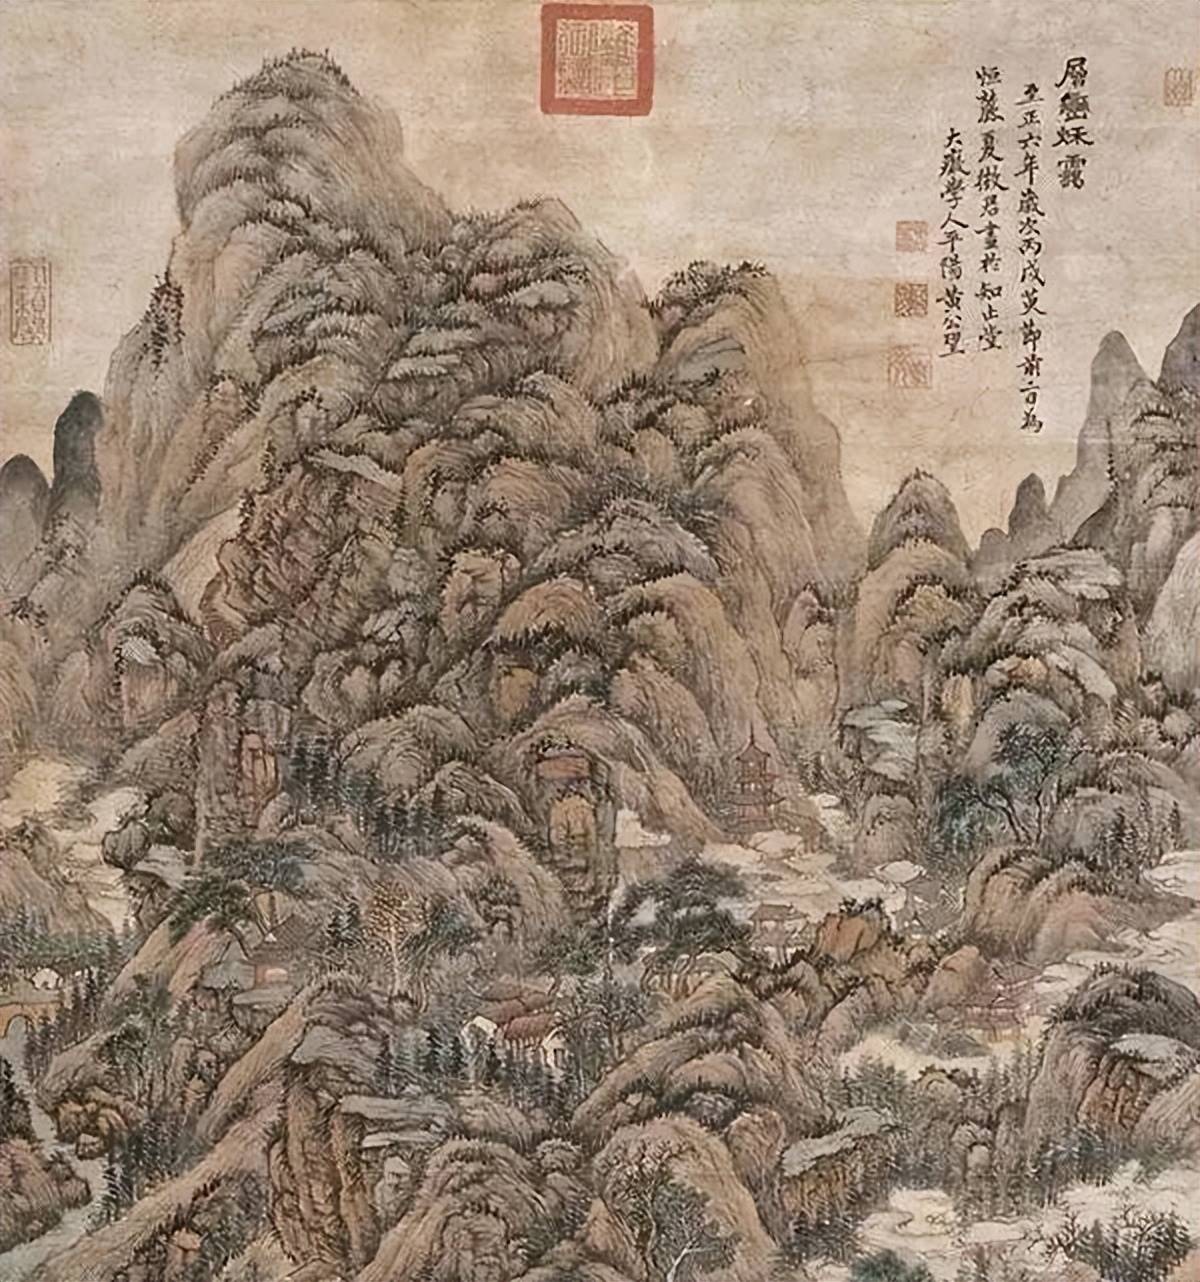 層巒秌靄
至正六年歲次丙戌萸節前二日為
恒麓夏徵君畫於知止堂
大癡學人平陽黃公望